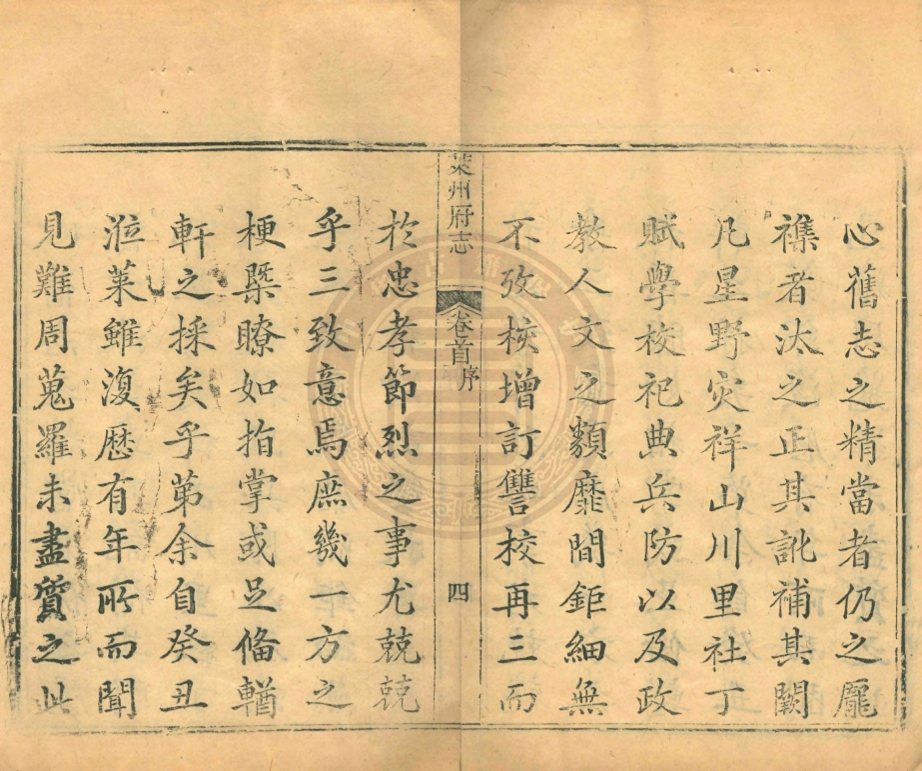 心舊志之精當者仍之龎
襍者汰之正其訛補其闕
凡星野灾祥山川里社丁
賦學校祀典兵防以及政
教人文之類靡間鉅細無
不攷核增訂讐校再三而
萊州府志 卷首 序 四
於忠孝節烈之事尤兢兢
乎三致意焉庶幾一方之
梗槩瞭如指掌或足備輶
軒之採矣乎第余自癸丑
涖萊雖復歷有年所而聞
見難周蒐羅未盡質之此